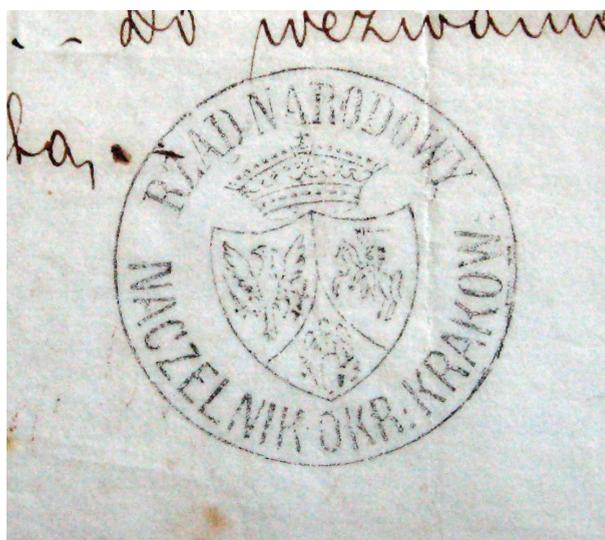 do wezwania
RZĄD NARODOWY
NACZELNIK OKR: KRAKOW: